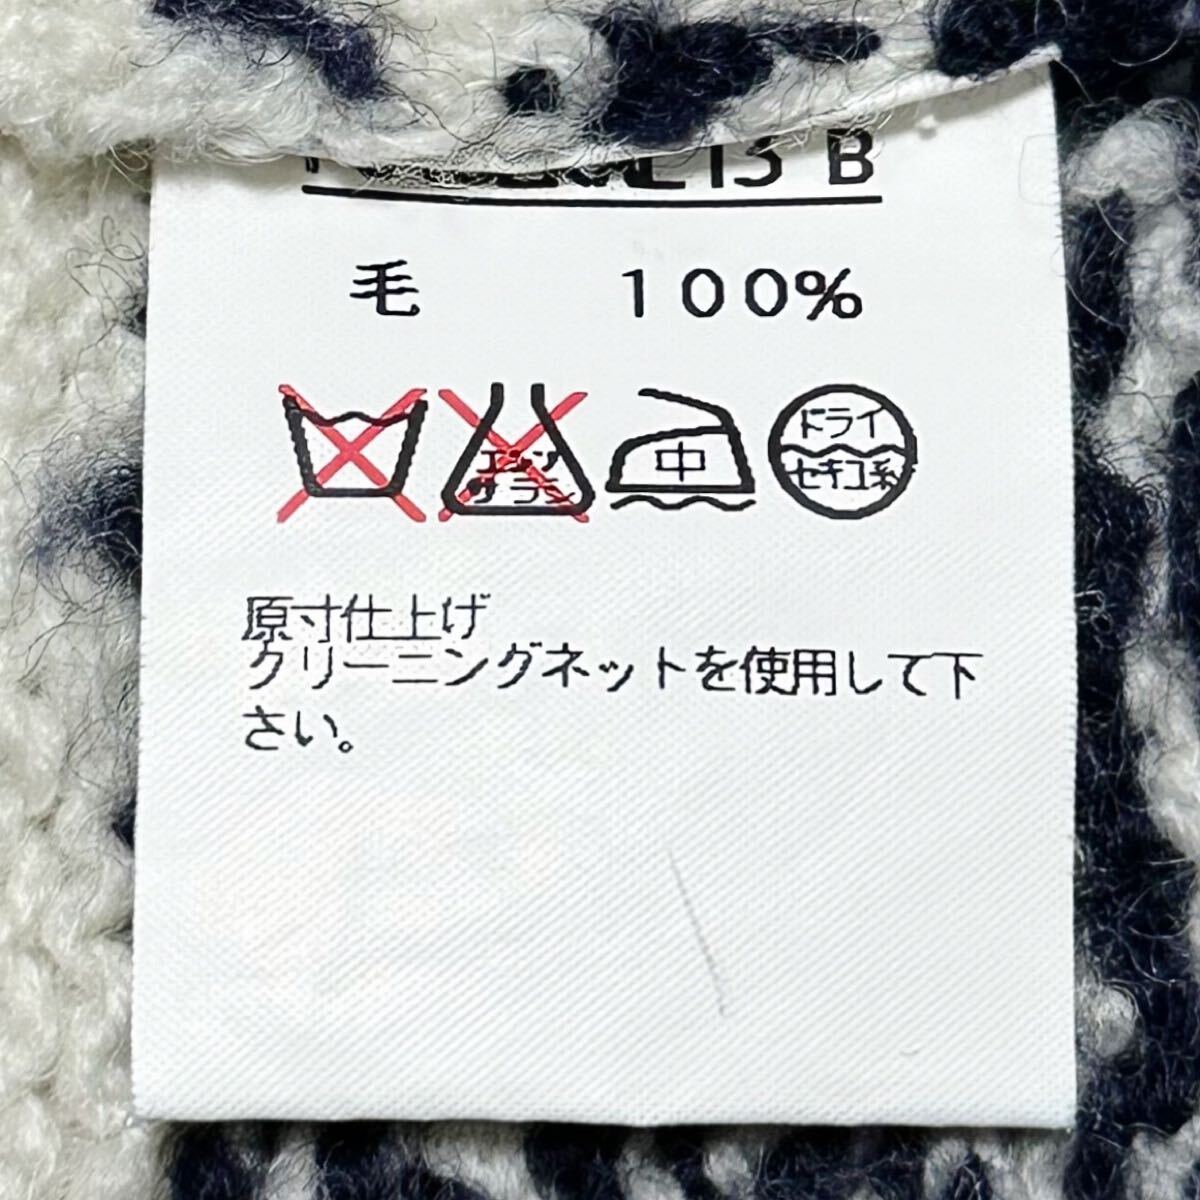 13 B
毛 100%
エンソ
サラシ
中
ドライ
セキユ系
原寸仕上げ
クリーニングネットを使用して下
さい。